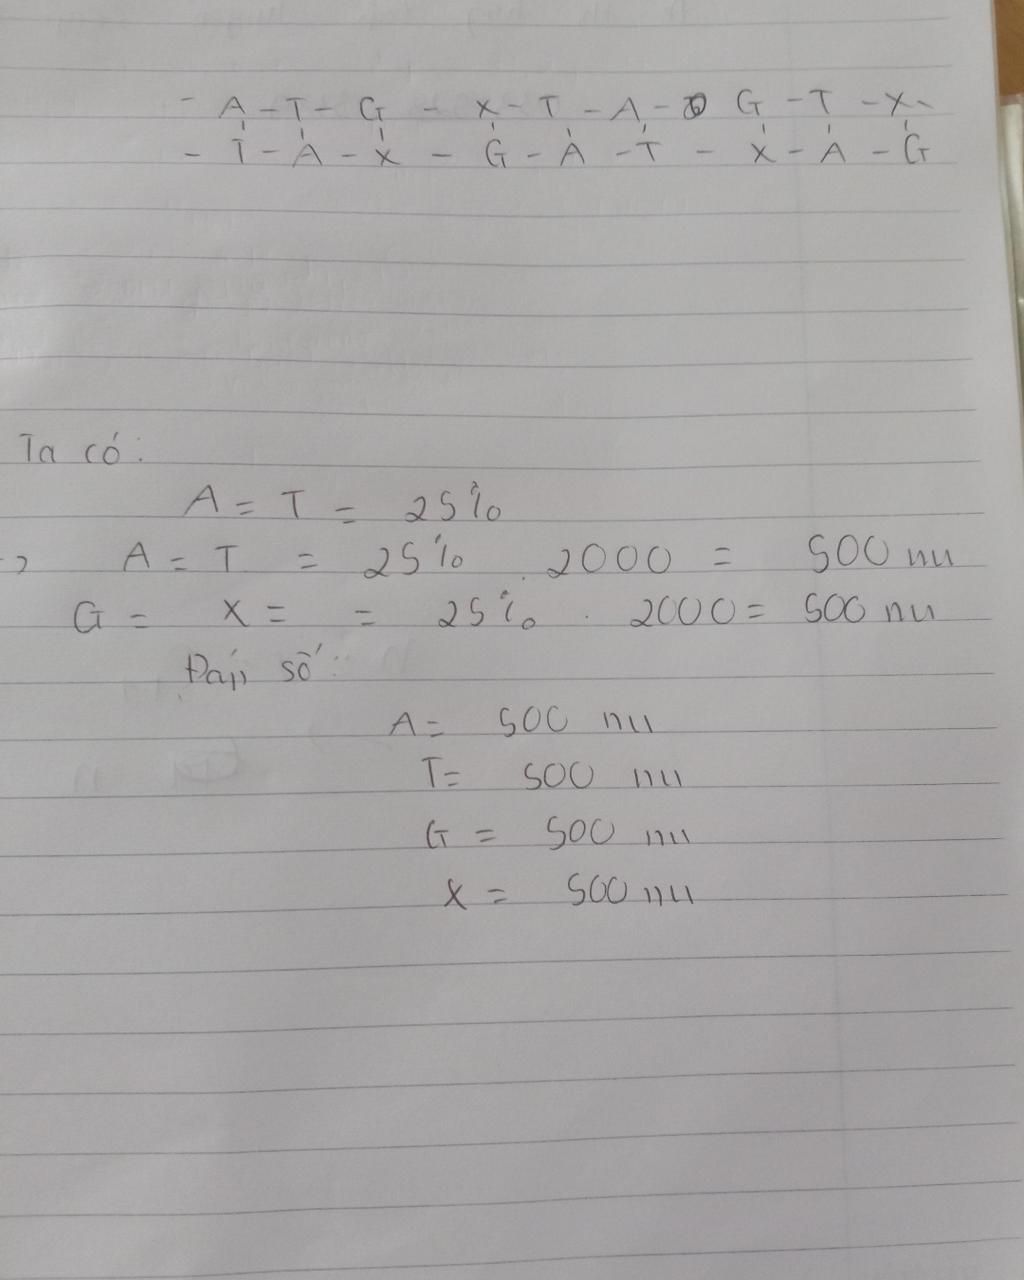 - A - T - G - X - T - A - G - T - X -
- T - A - X - G - A - T - X - A - G
Ta có:
A = T = 25%
A = T = 25% . 2000 = 500 nu
G = X = = 25% . 2000 = 500 nu
Đáp số:
A = 500 nu
T = 500 nu
G = 500 nu
X = 500 nu